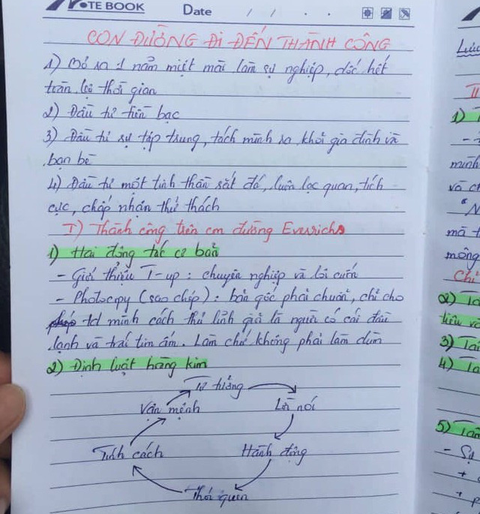 NOTE BOOK
Date / / .
CON ĐƯỜNG ĐI ĐẾN THÀNH CÔNG
1) Bỏ ra 1 năm miệt mài làm sự nghiệp, dốc hết
toàn bộ thời gian
2) Đầu tư tiền bạc
3) Đầu tư sự tập trung, tách mình ra khỏi gia đình và
bạn bè
4) Đầu tư một tinh thần sắt đá, luôn lạc quan, tích
cực, chấp nhận thử thách
I) Thành công trên con đường Everrichs
1) Hai động tác cơ bản
- Giới thiệu T-up: chuyên nghiệp và lôi cuốn
- Photocopy (sao chép): bản gốc phải chuẩn, chỉ cho
td mình cách thủ lĩnh giả là người có cái đầu
lạnh và trái tim ấm. Làm chứ không phải làm
2) Định luật hàng kim
Tư tưởng
Vận mệnh Lời nói
Tính cách Hành động
Thói quen
Lưu
II
1)
-
mình
và c
"N
mà t
mông
Chỉ
2)
tiêu và
3) Làm
4)
5) Làm
- Sự
+
+ p